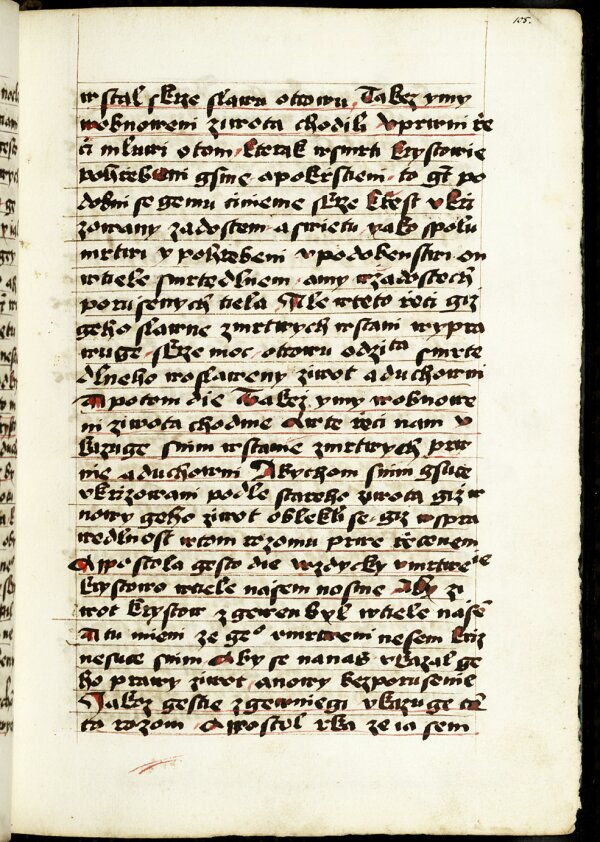 105.
wstal skrze slawu otcowu, Takez y my
wobnoweni ziwota chodili Vprwni rze
czi mluwi o tom kterak wsmrti krystowie
pohrzebeni gsme a pokrstieni to gt po
dobni se gemu czinieme skrze krzest vkrzi
zowany zadostem a swietu yako spolu
mrtwi y pohrzebeni vpodobenstwi on
wtiele smrtedlnem a my wzadostech
porusenych tiela Ale wteto rzeczi giz
geho slawne zmrtwych wstani wypra
wuge skrze moc otcowu odzita smrte
dlneho woslaweny ziwot a duchowni
A potom die Takez y my wobnowe
ni ziwota chodme A wte rzeczi nam v
kazuge snim wstanie zmrtwych prw
nie a duchowni Abychom snim gsuce
vkrzizowani podle stareho ziwota giz w
nowy geho ziwot oblekli se giz wspra
wedlnost wtom rozomu prwe rzeczenem
Appostola gesto die wzdycky vmrtwenie
krystowo wtiele nasem nosme Aby zi
wot krystow zgewen byl wtiele nasem
A tu mieni ze geho vmrtweni nesem krziz
nesuce snim Aby se nanas vkazal ge
ho prawy ziwot a nowy bezporusenie
Jakoz gestie zgewniegi vkazuge ten
to rozom Appostol rzka ze ia sem